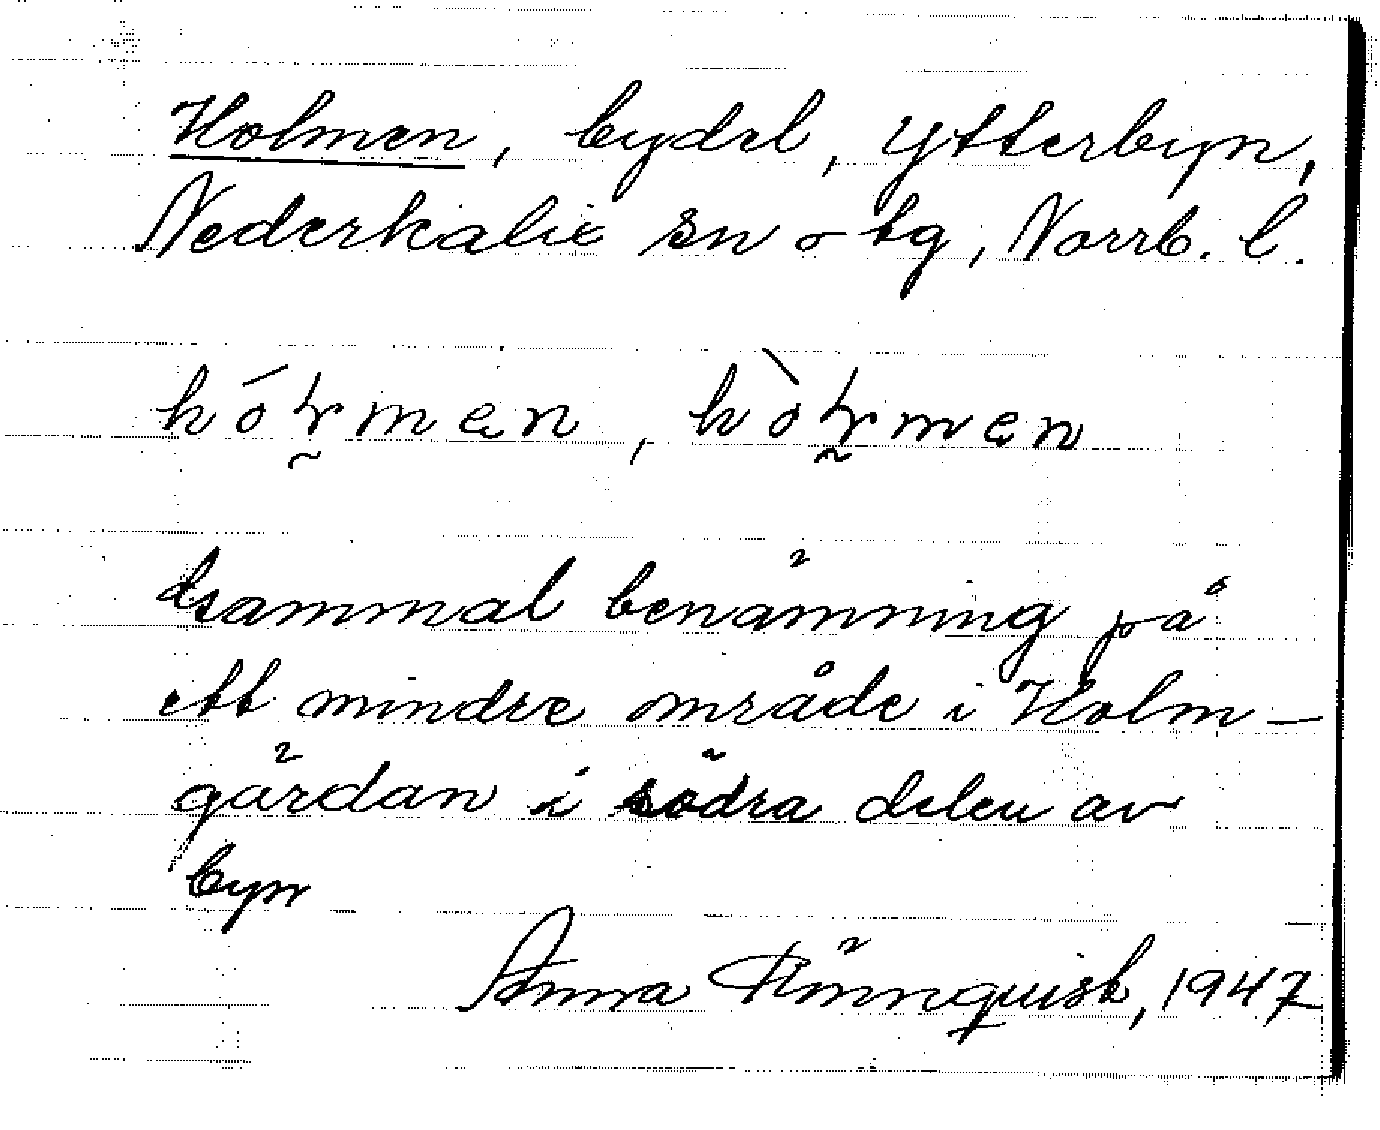 Holmen, bydel, Ytterbyn,
Nederkalix sn o tg, Norrb. l.
hóɽmen, hòɽmen
Gammal benämning på
ett mindre område i Holm-
gärdan i södra delen av
byn
Anna Rönnquist, 1947